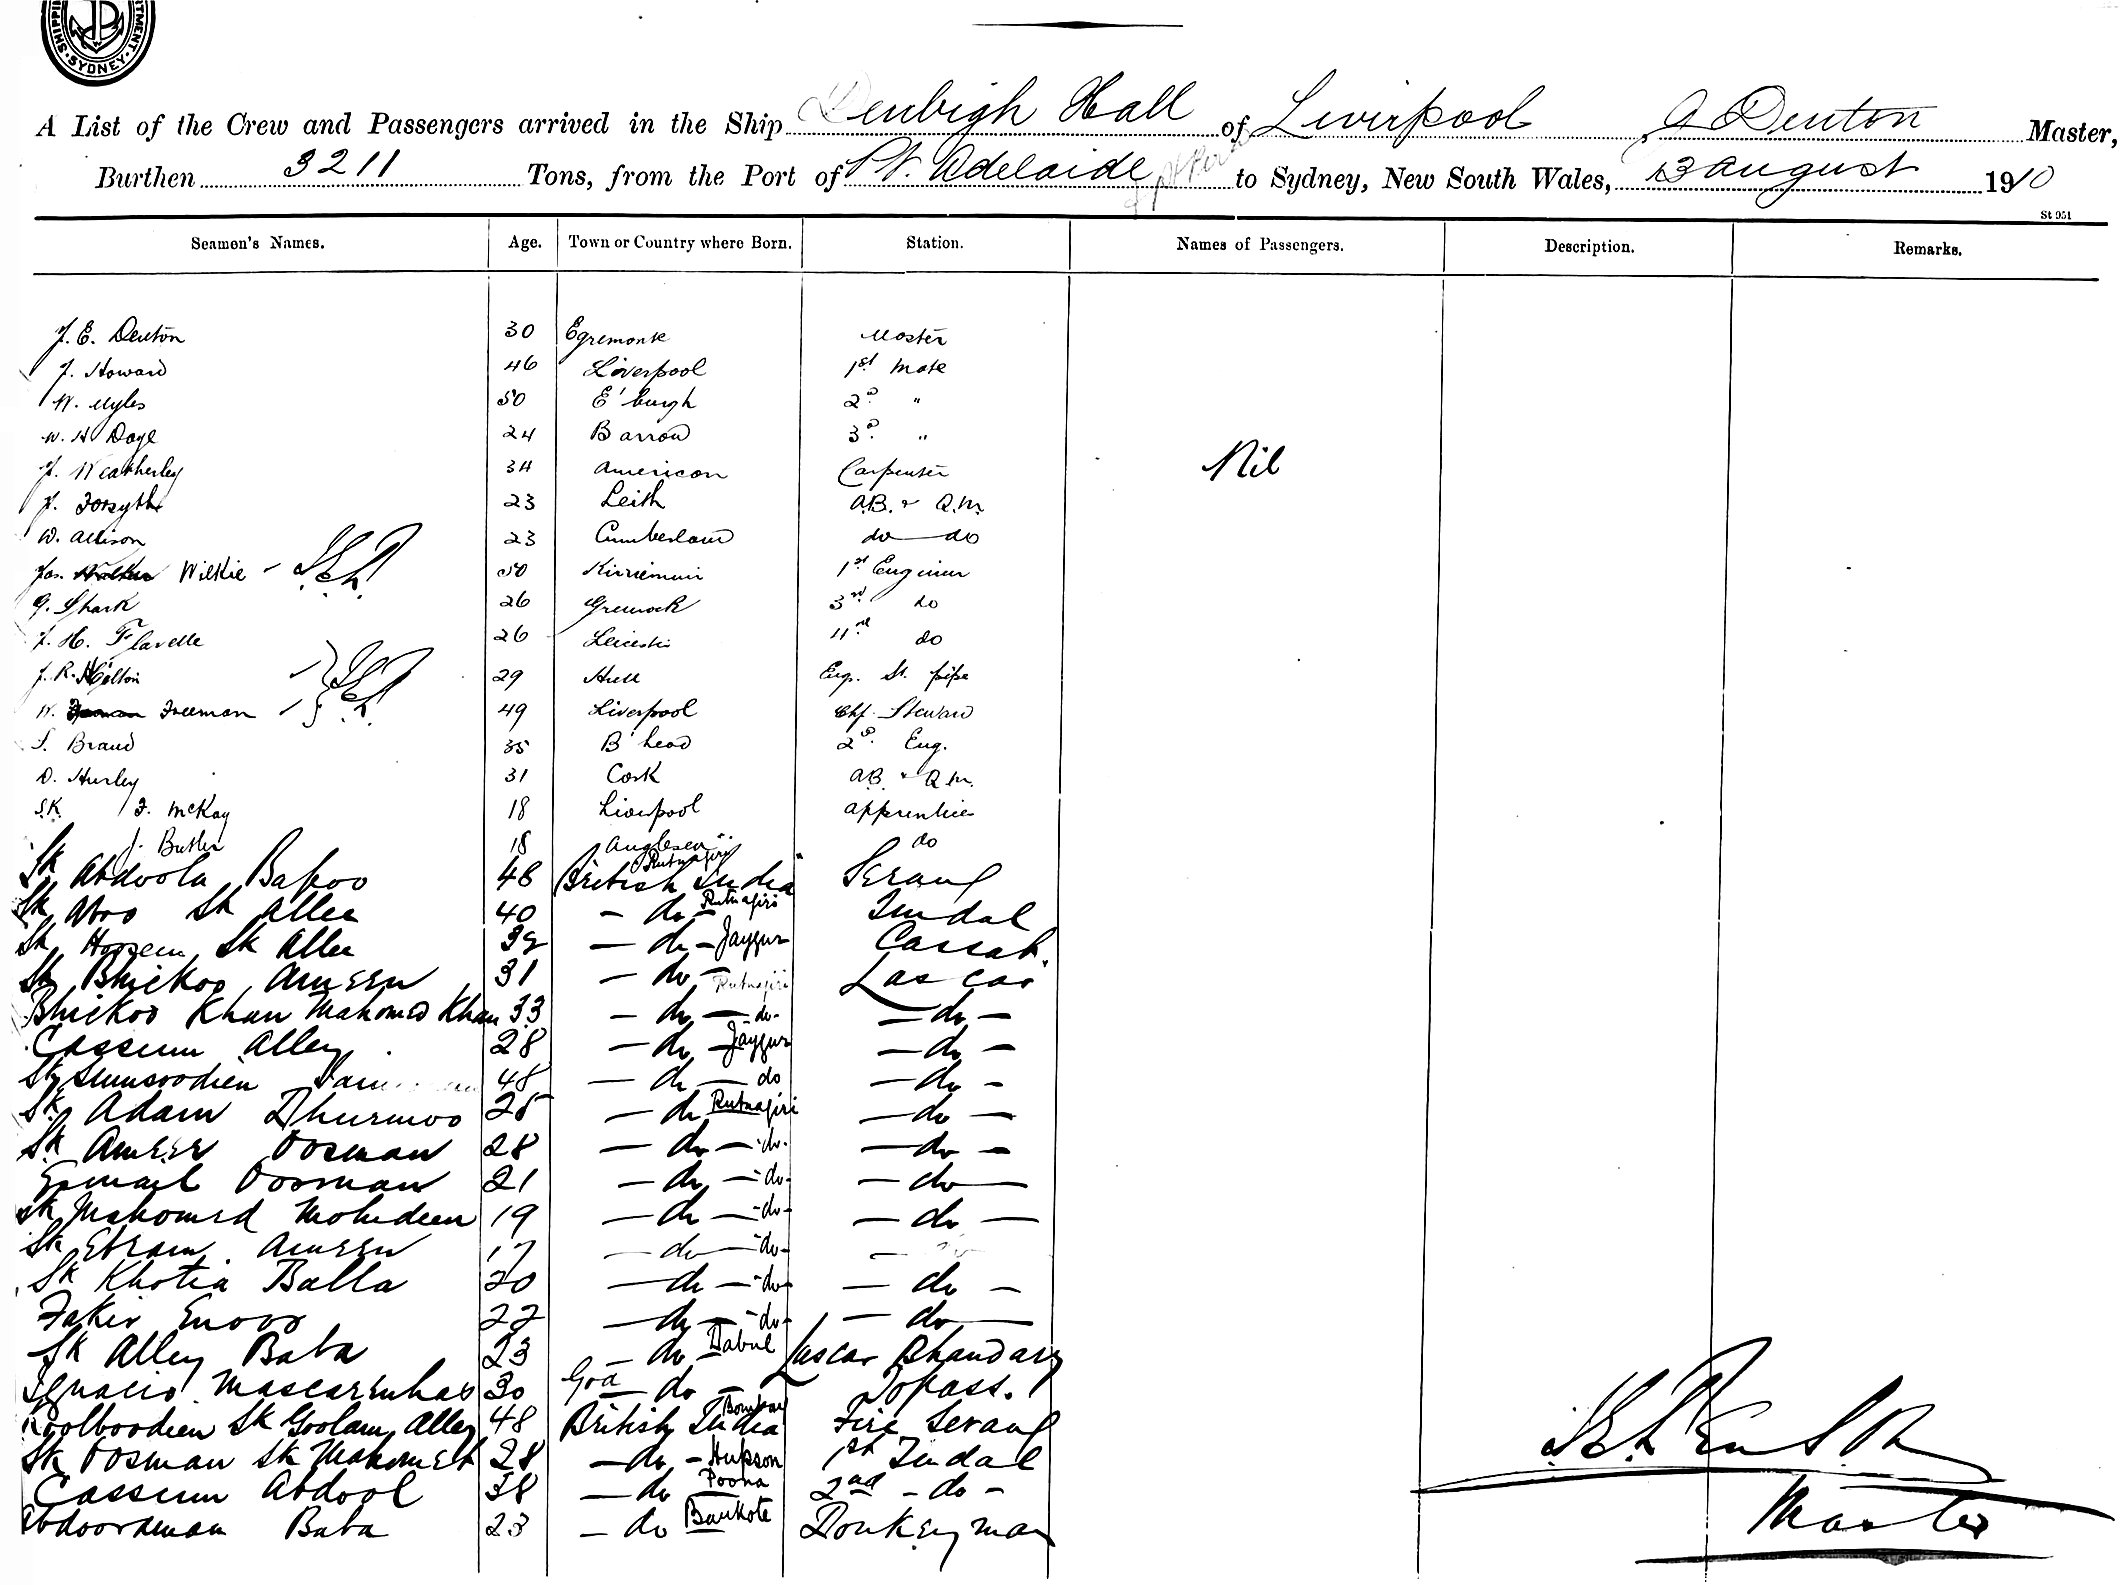 SHIPPI RTMENT SYDNEY
A List of the Crew and Passengers arrived in the Ship Denbigh Hall of Liverpool, Denton Master,
Burthen 3211 Tons, from the Port of Pt. Adelaide to Sydney, New South Wales, 13 August 1910
St 951
Seamen's Names. Age. Town or Country where Born. Station. Names of Passengers. Description. Remarks.
J. E. Denton 30 Egremont Master
J. Howard 46 Liverpool 1st Mate
W. Myles 50 E'burgh 2d "
W. H Doyl 24 Barrow 3d "
J. Weatherley 34 American Carpenter Nil
J. Forsyth 23 Leith A.B. & Q.M.
W. Allison 23 Cumberland do do
Jas. Wilkie 50 Kirriemuir 1st Engineer
G. Shark 26 Greenock 3rd do
J. H. Flavelle 26 Leicester 4 do
J. R. Hilton 29 Hull Eng. St. pipe
W. Freeman 49 Liverpool Chf. Steward
S. Braud 35 B'head 2d Eng.
D. Hurley 31 Cork AB & Q.M.
S.K. F. McKay 18 Liverpool Apprentice
J. Butler 18 Anglesea do
Sk Abdoola Bapoo 48 British India Rutnagiri Serang
Sk Aboo Sk Allee 40 - do - Rutnagiri Tindal
Sk Hossein Sk Allee 39 - do - Jaygur Cassab.
Sk Bhickoo Ameen 31 - do - Rutnagiri Lascar
Bhickoo Khan Mahomed Khan 33 - do - do - - do -
Cassum Alley 28 - do - Jaygur - do -
Sk Shumsoodien 48 - do - do - do -
Sk Adam Dhurmoo 25 - do Rutnagiri - do -
Sk Ameer Oosman 28 - do - do - - do -
Esmail Oosman 21 - do - do - - do -
Sk Mahomed Mohideen 19 - do - do - - do -
Sk Ebram Ameen 17 - do - do - -
Sk Khotia Balla 20 - do - do - - do -
Fakir Enoos 22 - do - do - - do -
Sk Alley Baba 23 - do - Dabul Lascar Bhandary
Ignacio Mascarenhas 30 Goa - do - Topass.
Koolboodien Sk Goolam Alley 48 British India Bombay Fire Serang
Sk Oosman Sk Mahomet 28 - do - Hubson 1st Tindal
Cassum Abdool 38 - do Poona 2nd - do -
Abdooraman Baba 23 - do Bankote Donkeyman
Master